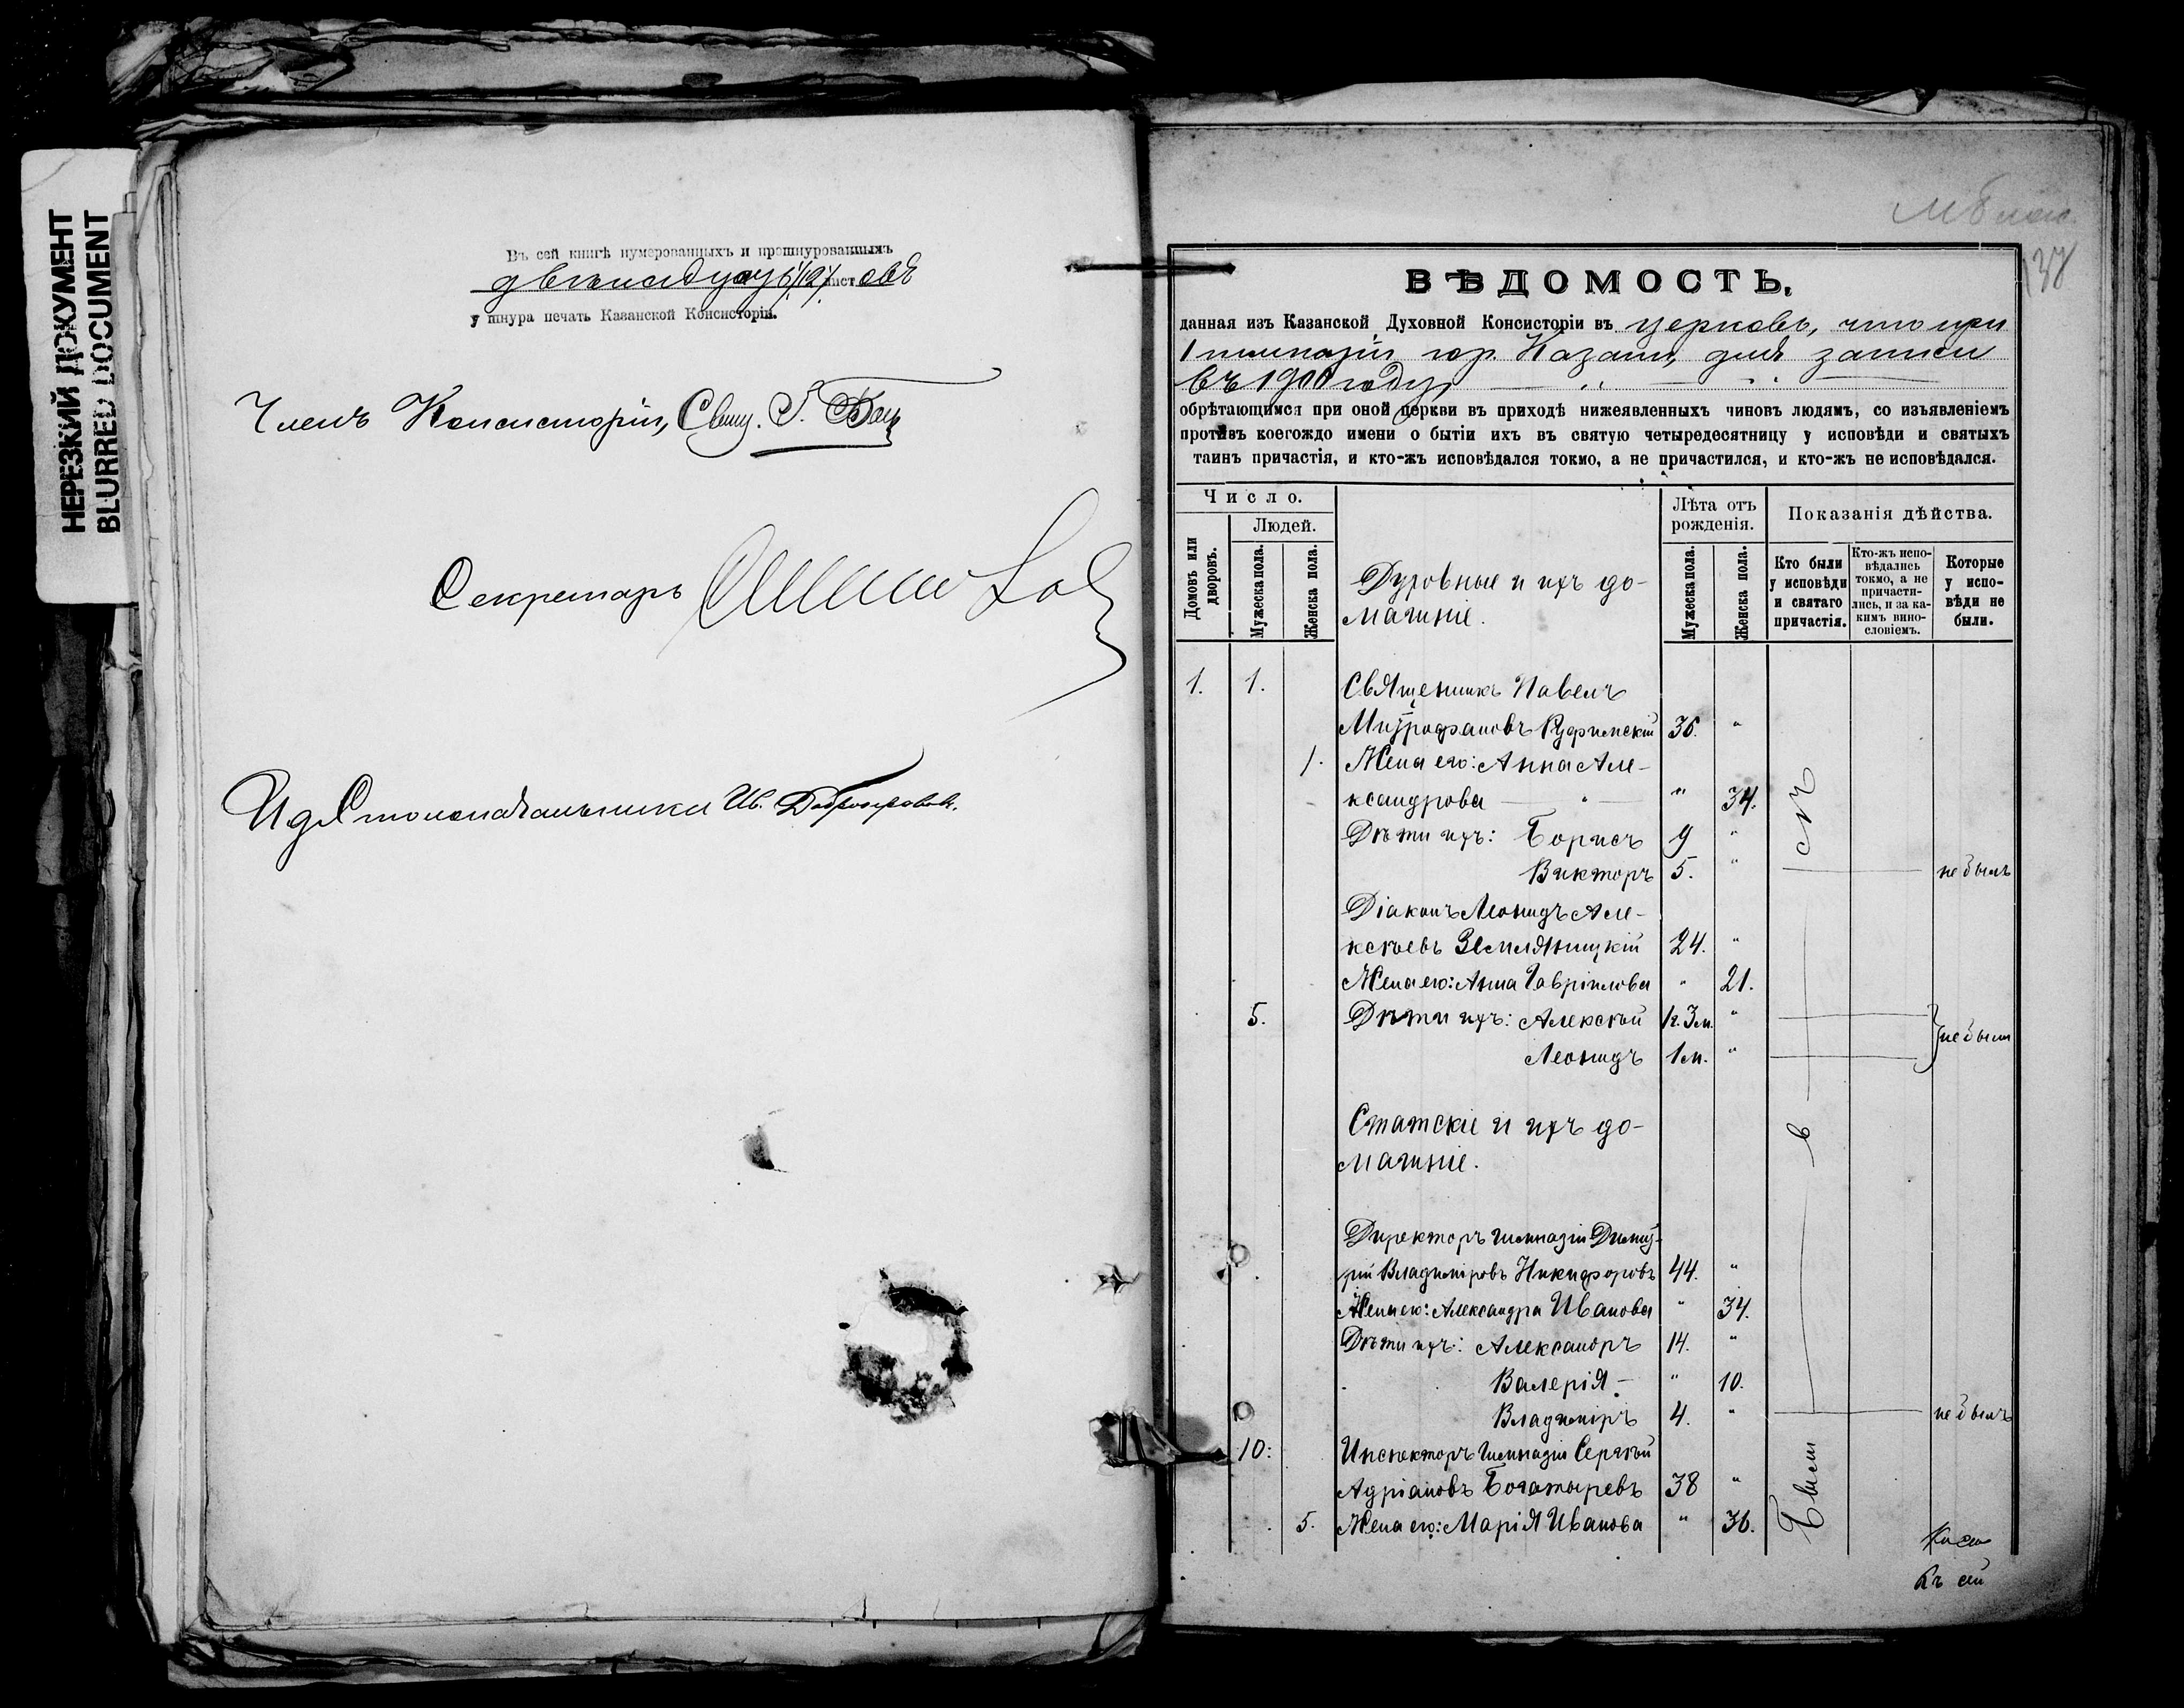 НЕРЕЗКИЙ ДОКУМЕНТ
BLURRED DOCUMENT
Въ сей книгѣ нумерованныхъ и прошнурованныхъ
двѣнадцать /12/ лист овъ
у шнура печать Казанской Консисторіи.
Членъ Консисторіи, Свящ.
Секретарь
И. д. Столоначальника Ив.
138
ВѢДОМОСТЬ,
данная изъ Казанской Духовной Консисторіи въ церковь, что при
1 гимназіи гор. Казани, для записи
въ 1900 году,
обрѣтающимся при оной церкви въ приходѣ нижеявленныхъ чиновъ людямъ, со изъявленіемъ
противъ коегождо имени о бытіи ихъ въ святую четыредесятницу у исповѣди и святыхъ
таинъ причастія, и кто-жъ исповѣдался токмо, а не причастился, и кто-жъ не исповѣдался.
Число.
Людей.
Домовъ или дворовъ.
Мужеска пола.
Женска пола.
Духовные и ихъ до-
машніе.
Лѣта отъ рожденія.
Мужеска пола.
Женска пола.
Показанія дѣйства.
Кто были у исповѣди и святаго причастія.
Кто-жъ исповѣдались токмо, а не причастились, и за какимъ винословіемъ.
Которые у исповѣди не были.
1. 1. Священникъ Павелъ
Митрофановъ Руфимскій 36. "
1. Жена его: Анна Але-
ксандрова — " — " 34.
Дѣти ихъ: Борисъ 9 "
Викторъ 5. " не былъ
Діаконъ Леонидъ Але-
ксѣевъ Земляницкій 24. "
Жена его: Анна Гавріилова " 21.
5. Дѣти ихъ: Алексѣй 1г. 3м. "
Леонидъ 1м. " } не были
Статскіе и ихъ до-
машніе.
Директоръ гимназіи Димит-
рій Владиміровъ Никифоровъ 44. "
Жена его: Александра Иванова " 34.
Дѣти ихъ: Александръ 14. "
Валерія — " 10.
Владиміръ 4. " не былъ
10. Инспекторъ гимназіи Сергѣй
Адріановъ Богатыревъ 38 "
5. Жена его: Марія Иванова " 36.
Были
Къ сей